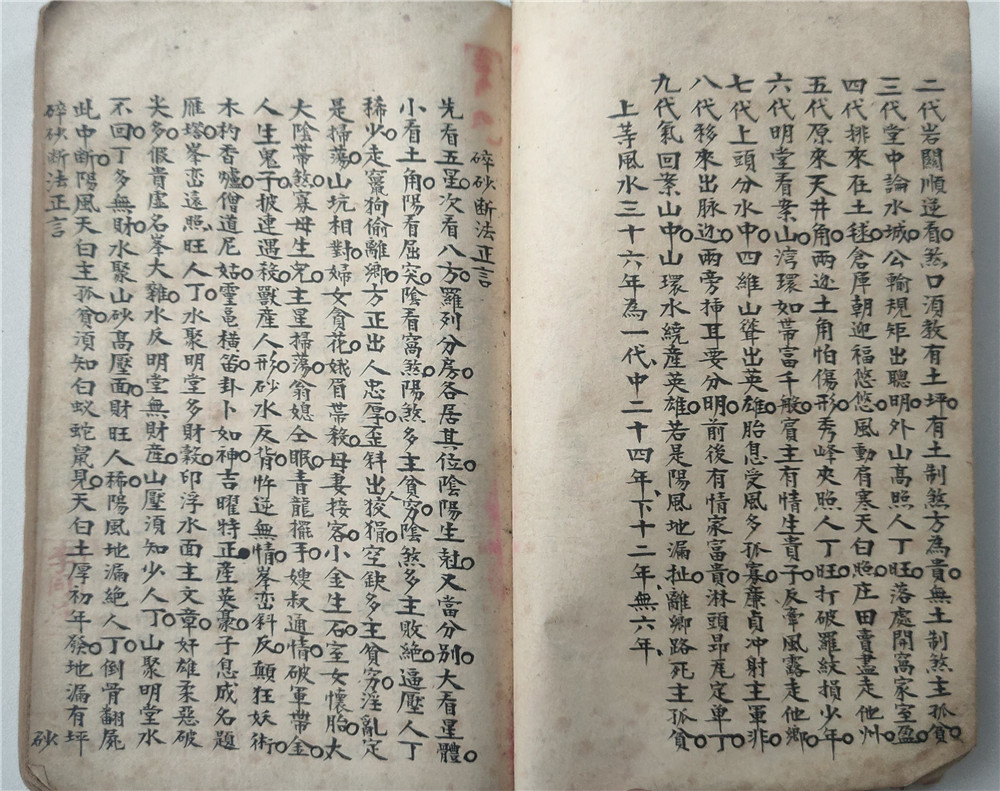 二代岩闗順逆看煞口須教有土坪有土制煞方為貴無土制煞主孤貧
三代堂中論水城公輸規矩出聰明外山高照人丁旺落處開窩家室盈
四代排來在土毬倉庫朝迎福悠悠風動肩寒天白照庄田賣盡走他州
五代原來天井角兩边土角怕傷形秀峰夾照人丁旺打破羅紋損少年
六代明堂看案山湾環如帶富千般賓主有情生貴子反弯風露走他鄉
七代上頭分水中四維山聳出英雄胎息受風多孤寡廉貞冲射主軍非
八代移來出脉边兩旁揷耳要分明前後有情家富貴淋頭昂尾定单丁
九代氣回案山中山環水繞產英雄若是陽風地漏扯離鄉路死主孤貧
上等風水三十六年為一代中二十四年下十二年無六年
碎砂断法正言
先看五星次看八方羅列分房各居其位陰陽生尅又當分别大看星體
小看土角陽看屈突陰看窩煞陽煞多主貧窮陰煞多主敗絶逼壓人丁
稀少走竄狗偷離鄉方正出人忠厚歪斜出人狡猾空缺多主貧窮淫亂定
是掃蕩山坑相對婦女貪花娥眉帶殺母妻接客小金生石室女懷胎太
大陰帶煞寡母生兒主星掃蕩翁媳仝眠青龍擺手嫂叔通情破軍帶金
人生鬼子披連遇殺獸產人形砂水反背忤逆無情峯巒斜反顛狂妖術
木杓香爐僧道尼姑靈龟橫笛卦卜如神吉曜特正產英豪子息成名題
雁塔峯巒遠照旺人丁水聚明堂多財穀印浮水面主文章奸雄柔惡破
尖多假貴虛名峯大雞水反明堂無財產山壓須知少人丁山聚明堂水
不回丁多無財水聚山砂高壓面財旺人稀陽風地漏絶人丁倒骨翻屍
此中断陽風天白主孤貧須知白蚁蛇鼠見天白土厚初年發地漏有坪
碎砂断法正言
砂